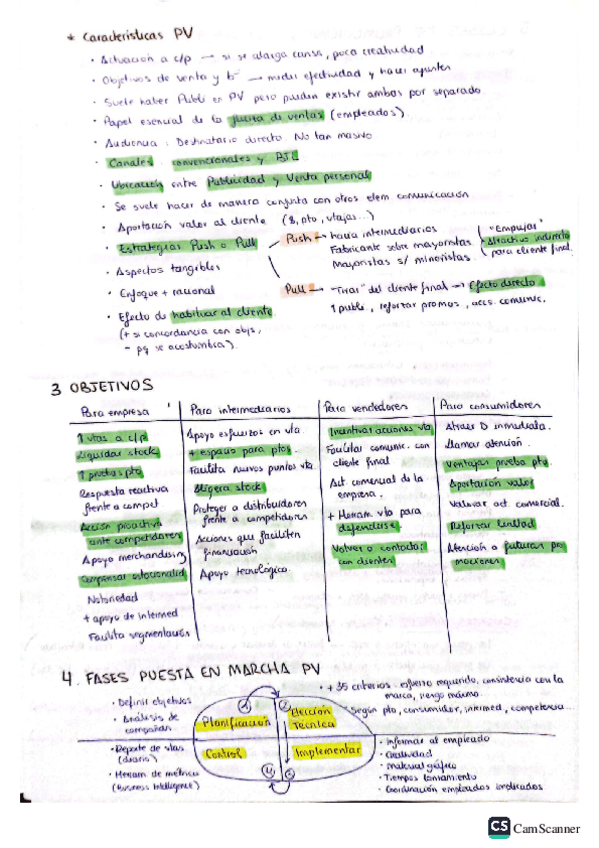 * Características PV
· Actuación a c/p → si se alarga cansa, poca creatividad
· Objetivos de venta y bº → medir efectividad y hacer ajustes
· Suele haber Publi en PV pero pueden existir ambos por separado
· Papel esencial de la fuerza de ventas (empleados)
· Audiencia: Destinatario directo. No tan masivo
· Canales convencionales y BTL
· Ubicación entre Publicidad y Venta personal
· Se suele hacer de manera conjunta con otros elem comunicación
· Aportación valor al cliente ($, pto, vtajas...)
· Estrategias Push o Pull
Push → hacia intermediarios
Fabricante sobre mayoristas
Mayoristas s/ minoristas
"Empujar"
Atractivo indirecto
para cliente final.
· Aspectos tangibles
· Enfoque + racional
Pull → "Tirar" del cliente final → Efecto directo
↑ publi, reforzar promos, accs. comunic.
· Efecto de habituar al cliente
(+ si concordancia con objs,
- pq se acostumbra).
3 OBJETIVOS
Para empresa
↑ vtas a c/p
Liquidar stock
↑ pruebas pto
Respuesta reactiva
frente a compet
Acción proactiva
ante competidores
Apoyo merchandising
Compensar estacionalid
Notoriedad
+ apoyo de intermed
Facilita segmentación
Para intermediarios
Apoyo esfuerzos en vta
+ espacio para ptos
Facilita nuevos puntos vta
Aligera stock
Proteger a distribuidores
frente a competidores
Acciones que faciliten
financiación
Apoyo tecnológico
Para vendedores
Incentivar acciones vta
Facilitar comunic. con
cliente final
Act comercial de la
empresa.
+ Herram. vta para
defenderse
Volver a contactar
con clientes
Para consumidores
Atraer D inmediata.
Llamar atención.
Ventajas prueba pto.
Aportación valor
Valorar act. comercial.
Reforzar lealtad
Atención a futuras pro
mociones
4. FASES PUESTA EN MARCHA PV
· Definir objetivos
· Análisis de
campañas
Planificación
② Elección
Técnica
· + 35 criterios: esfuerzo requerido, consistencia con la
marca, riesgo máximo...
· Según pto, consumidor, intermed, competencia...
· Reporte de vtas
(diario)
· Herram de métricas
(Business Intelligence)
Control
Implementar
④
③
· Informar al empleado
· Creatividad
· Material gráfico
· Tiempos lanzamiento
· Coordinación empleados implicados
CS CamScanner